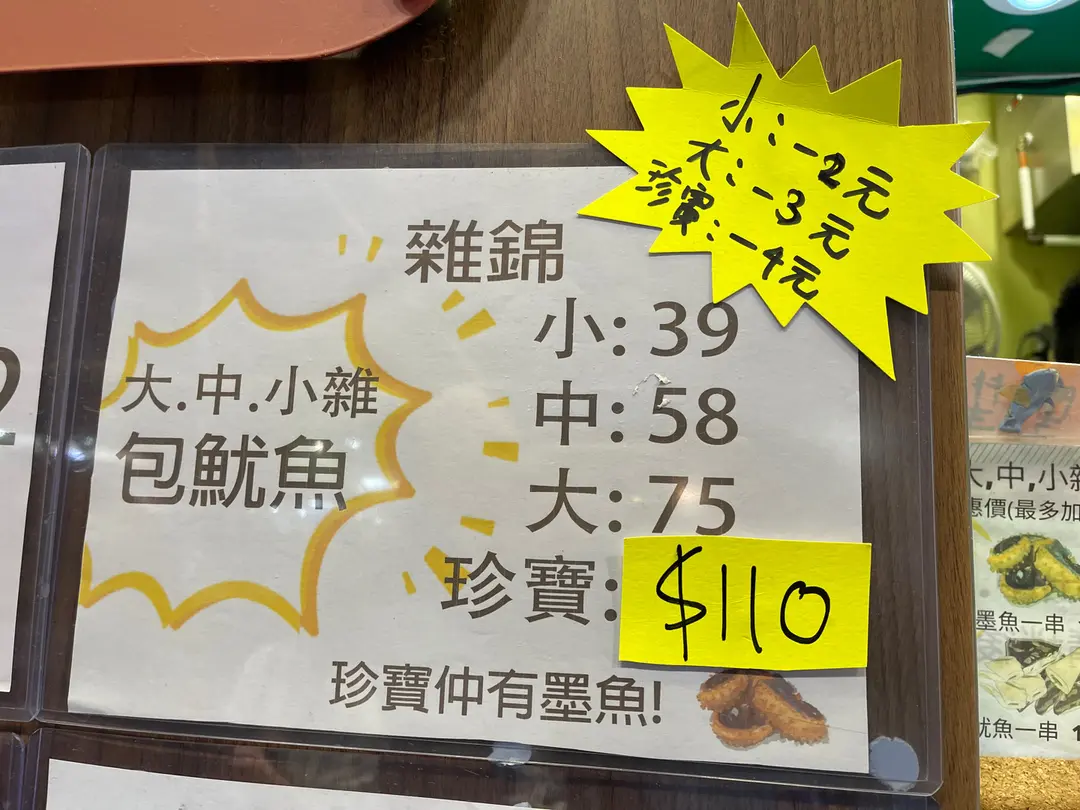 小:-2元
大:-3元
珍寶:-4元
雜錦
小: 39
中: 58
大: 75
珍寶: $110
大.中.小雜
包魷魚
珍寶仲有墨魚!
大,中,小雜
惠價(最多加
墨魚一串
魷魚一串